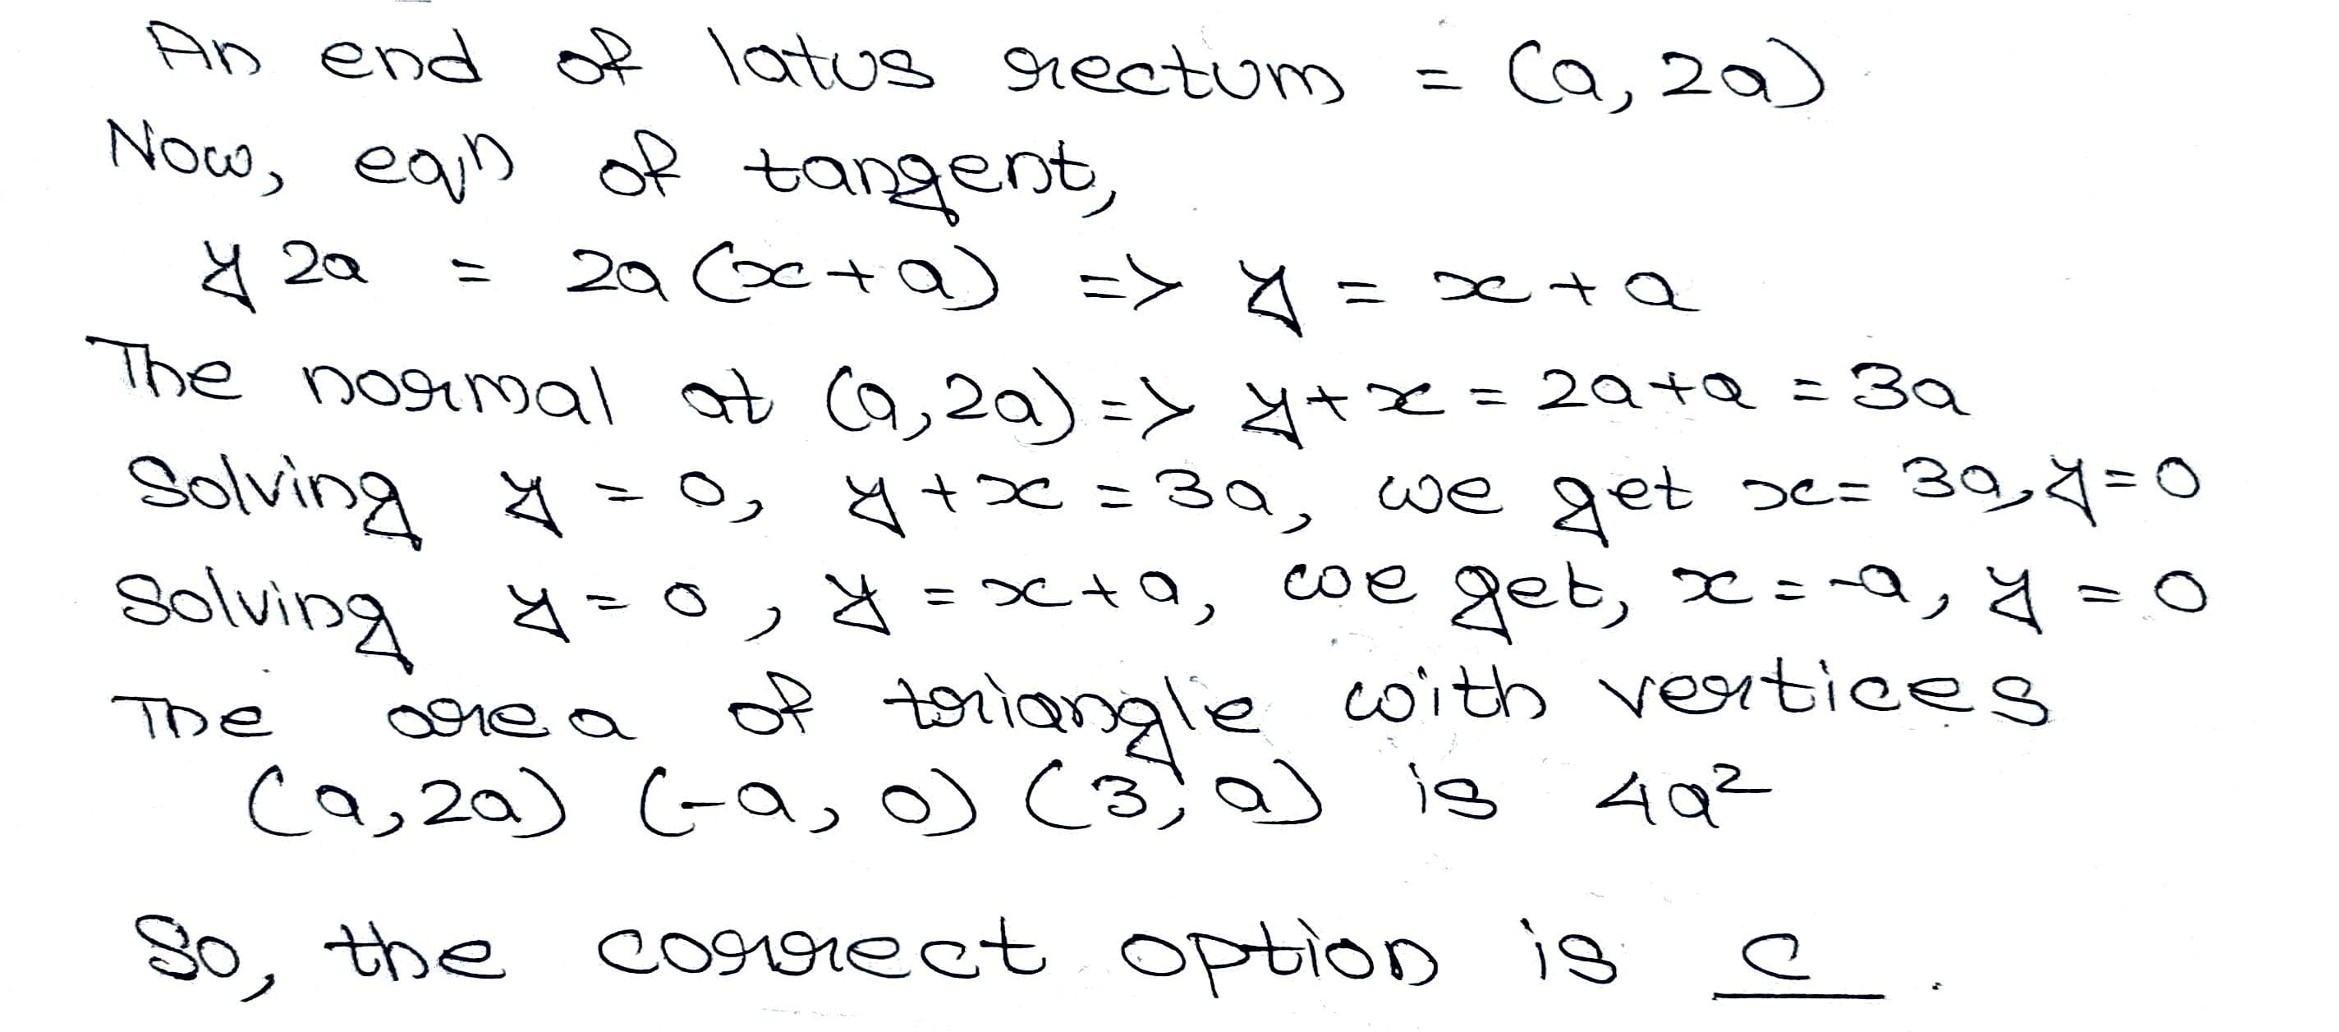 An end of latus rectum = (a, 2a)
Now, eqn of tangent,
y 2a = 2a (x + a) => y = x + a
The normal at (a, 2a) => y + x = 2a + a = 3a
Solving y = 0, y + x = 3a, we get x = 3a, y = 0
Solving y = 0, y = x + a, we get, x = -a, y = 0
The area of triangle with vertices
(a, 2a) (-a, 0) (3, a) is 4a²
So, the correct option is c.